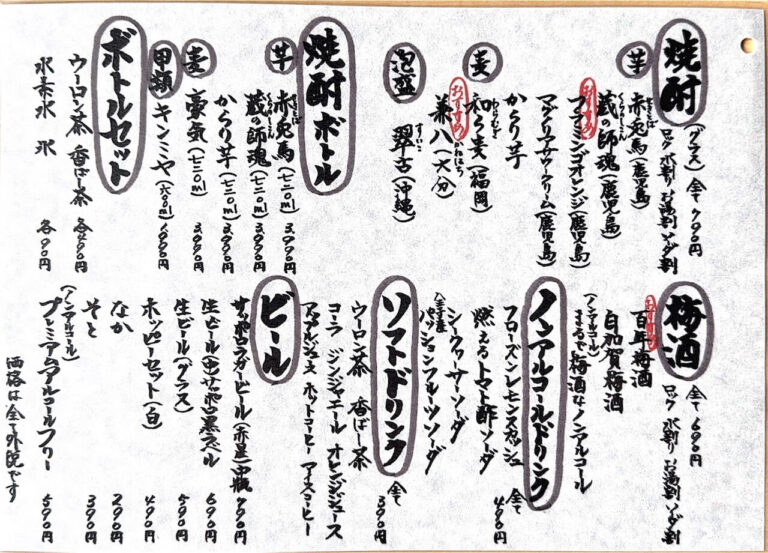 焼酎
(グラス) 全て790円
ロック 水割り お湯割 ソーダ割
芋
赤兎馬(鹿児島)
蔵の師魂(鹿児島)
おすすめ
フラミンゴオレンジ(鹿児島)
マグノリアサワークリーム(鹿児島)
からり芋
麦
和ら麦(福岡)
おすすめ
兼八(大分)
泡盛
翠古(沖縄)
焼酎ボトル
芋
赤兎馬(七二〇ml) 3990円
蔵の師魂(七二〇ml) 3990円
からり芋(七二〇ml) 3990円
麦
豪気(七二〇ml) 3990円
甲類
キンミヤ(六〇〇ml)
ボトルセット
ウーロン茶 香ばし茶 各490円
水素水 氷 各90円
梅酒
全て690円
ロック 水割り お湯割 ソーダ割
おすすめ
百年梅酒
白加賀梅酒
(ノンアルコール)
まるで梅酒なノンアルコール
ノンアルコールドリンク
全て490円
フローズンレモンスカッシュ
燃えるトマト酢ソーダ
シークヮーサーソーダ
八王子産
パッションフルーツソーダ
ソフトドリンク
全て390円
ウーロン茶 香ばし茶
コーラ ジンジャエール オレンジジュース
アップルジュース ホットコーヒー アイスコーヒー
ビール
サッポロラガービール(赤星)中瓶 790円
生ビール(中)サッポロ黒ラベル 690円
生ビール(グラス) 590円
ホッピーセット(白) 490円
なか 290円
そと 390円
(ノンアルコール)
プレミアムアルコールフリー 590円
価格は全て外税です